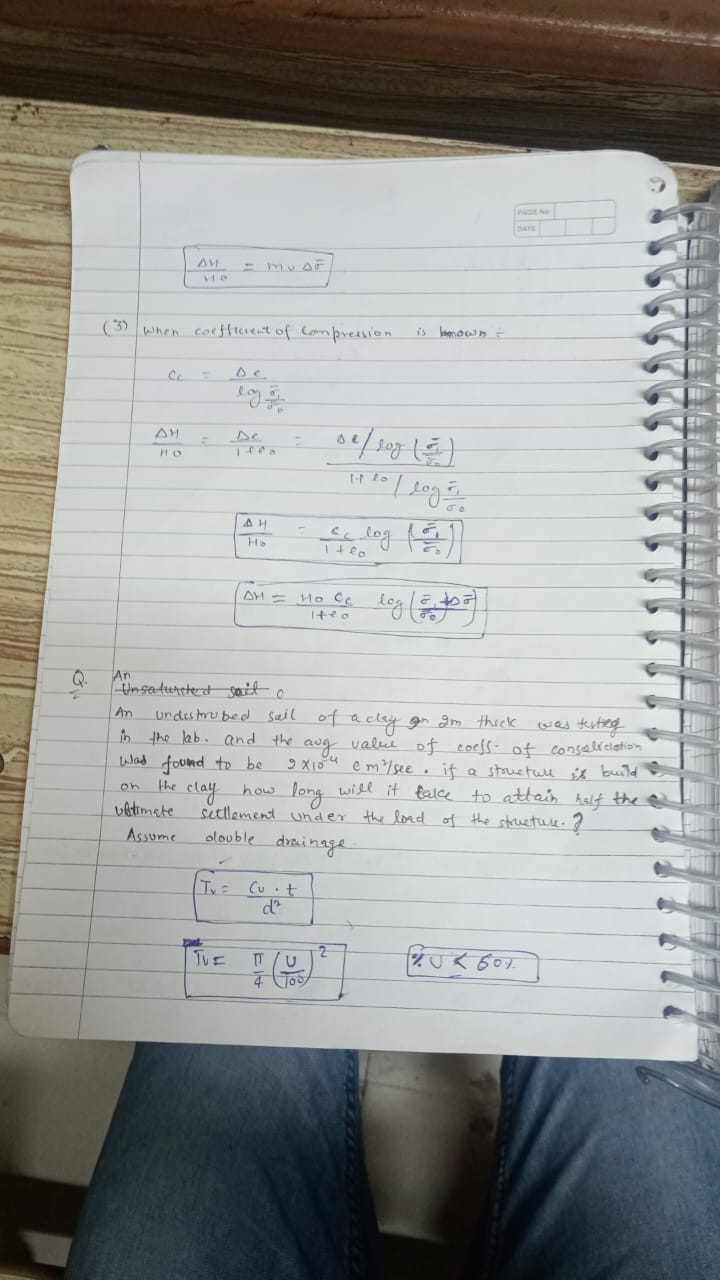 PAGE No
DATE
ΔH/H0 = mv Δσ̄
(3) When coefficient of compression is known :-
Cc = Δe / log σ̄1/σ̄0
ΔH/H0 = Δe/1+e0 = Δe/log (σ̄1/σ̄0) / 1+e0/log σ̄1/σ0
ΔH/H0 = Cc/1+e0 log (σ̄1/σ̄0)
ΔH = H0 Cc/1+e0 log (σ̄1+Δσ̄/σ̄0)
Q. An
Unsaturated soil
An undistrubed soil of a clay 2m thick was tested
in the lab. and the avg value of coeff. of consolidation
was found to be 2×10⁻⁴ cm²/sec. if a structure is build
on the clay how long will it take to attain half the
ultimate settlement under the load of the structure. ?
Assume double drainage.
Tv = Cv . t / d²
Tv = π/4 (U/100)² % U < 60%